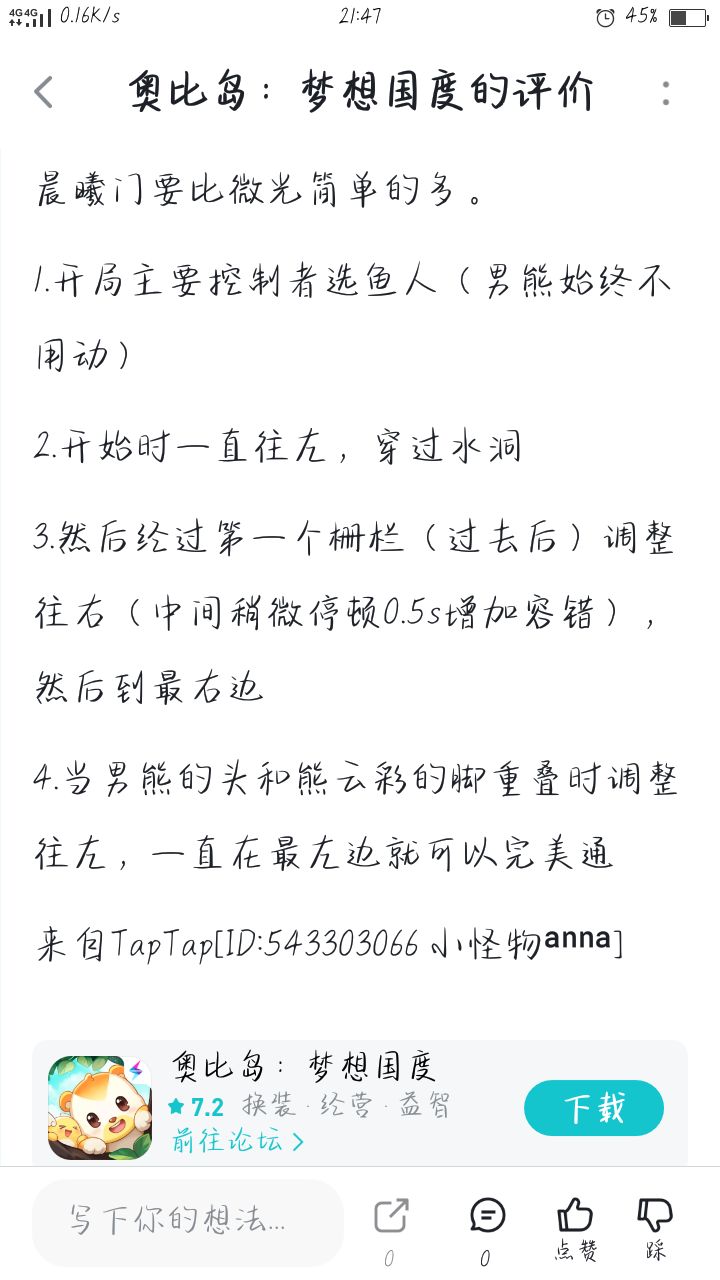 4G 4G 0.16K/s 21:47 45%
奥比岛：梦想国度的评价
晨曦门要比微光简单的多。
1.开局主要控制者选鱼人（男熊始终不
用动）
2.开始时一直往左，穿过水洞
3.然后经过第一个栅栏（过去后）调整
往右（中间稍微停顿0.5s增加容错），
然后到最右边
4.当男熊的头和熊云彩的脚重叠时调整
往左，一直在最左边就可以完美通
来自TapTap[ID:543303066 小怪物anna]
奥比岛：梦想国度
7.2 换装·经营·益智
下载
前往论坛
写下你的想法...
0
0
点赞
踩